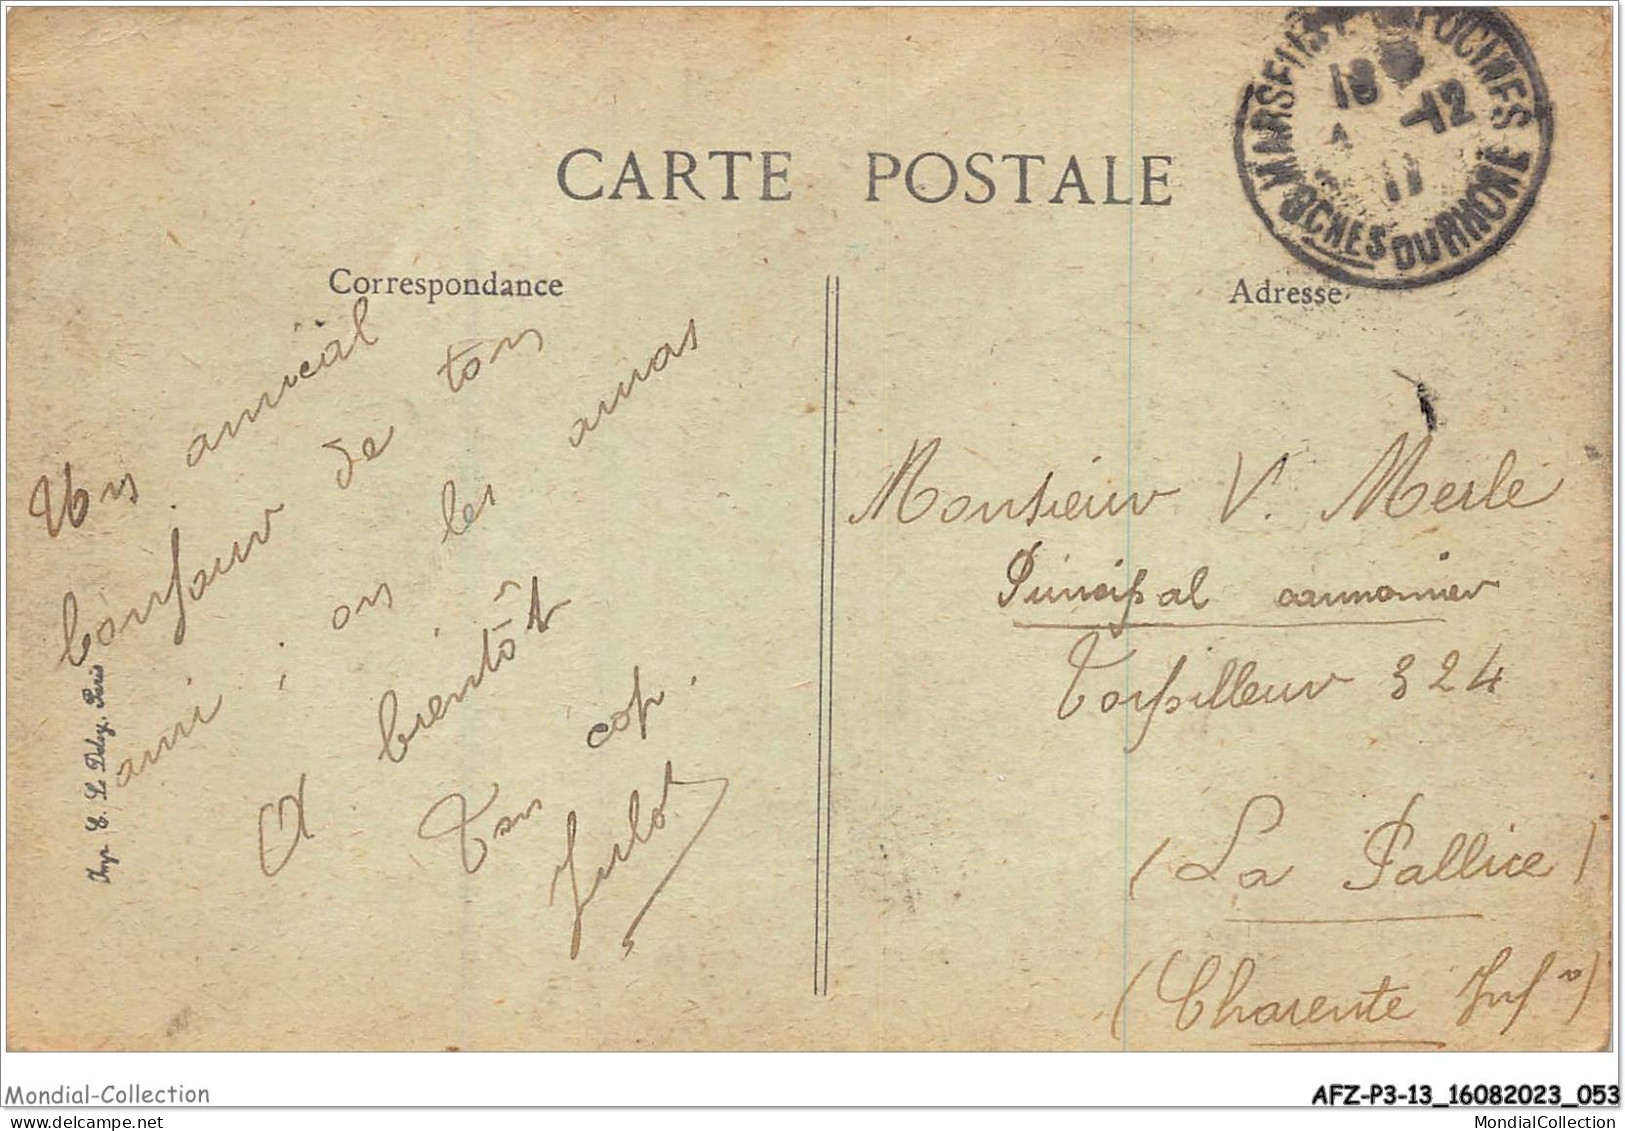 CARTE POSTALE
MARSEILLE CAPUCINES
18
-12
11
BCHES DU RHONE
Correspondance
Adresse
Un amical
bonjour de ton
ami ; on les auras
A bientôt
Ton cop.
Julot
Imp. E. Le Deley, Paris
Monsieur V. Merle
Principal cannonier
Torpilleur 324
(La Pallice)
(Charente Infre)
Mondial-Collection
AFZ-P3-13_16082023_053
MondialCollection